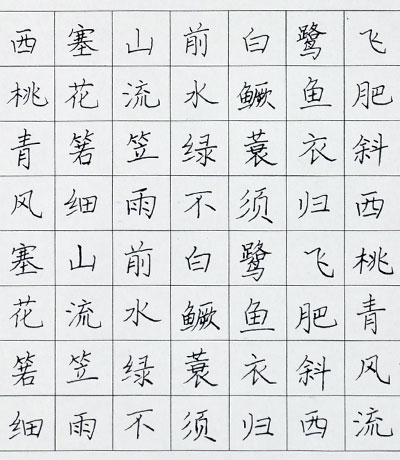 西塞山前白鹭飞
桃花流水鳜鱼肥
青箬笠绿蓑衣斜
风细雨不须归西
塞山前白鹭飞桃
花流水鳜鱼肥青
箬笠绿蓑衣斜风
细雨不须归西流